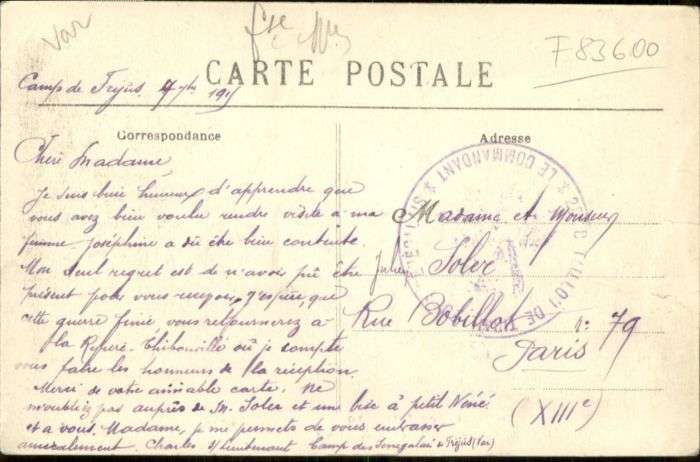 Var
F83600
CARTE POSTALE
Camp de Fréjus, 1915
Correspondance
Adresse
Chère Madame
Je suis bien heureux d'apprendre que
vous avez bien voulu rendre visite à ma
femme. Joséphine a dû être bien contente.
Mon seul regret est de n'avoir pû être
présent pour vous recevoir. J'espère que
cette guerre finie vous retournerez à
la Thibouville où je compte
vous faire les honneurs de la réception.
Merci de votre aimable carte. Ne
m'oubliez pas auprès de M. Soler et une bise à petit Néné
et a vous, Madame, je me permets de vous embrasser
amicalement. Charles s/Lieutenant Camp des Sénégalais de Fréjus (Var)
Madame et Monsieur
Jules Soler
Rue Bobillot n° 79
Paris
(XIIIe)
LE COMMANDANT